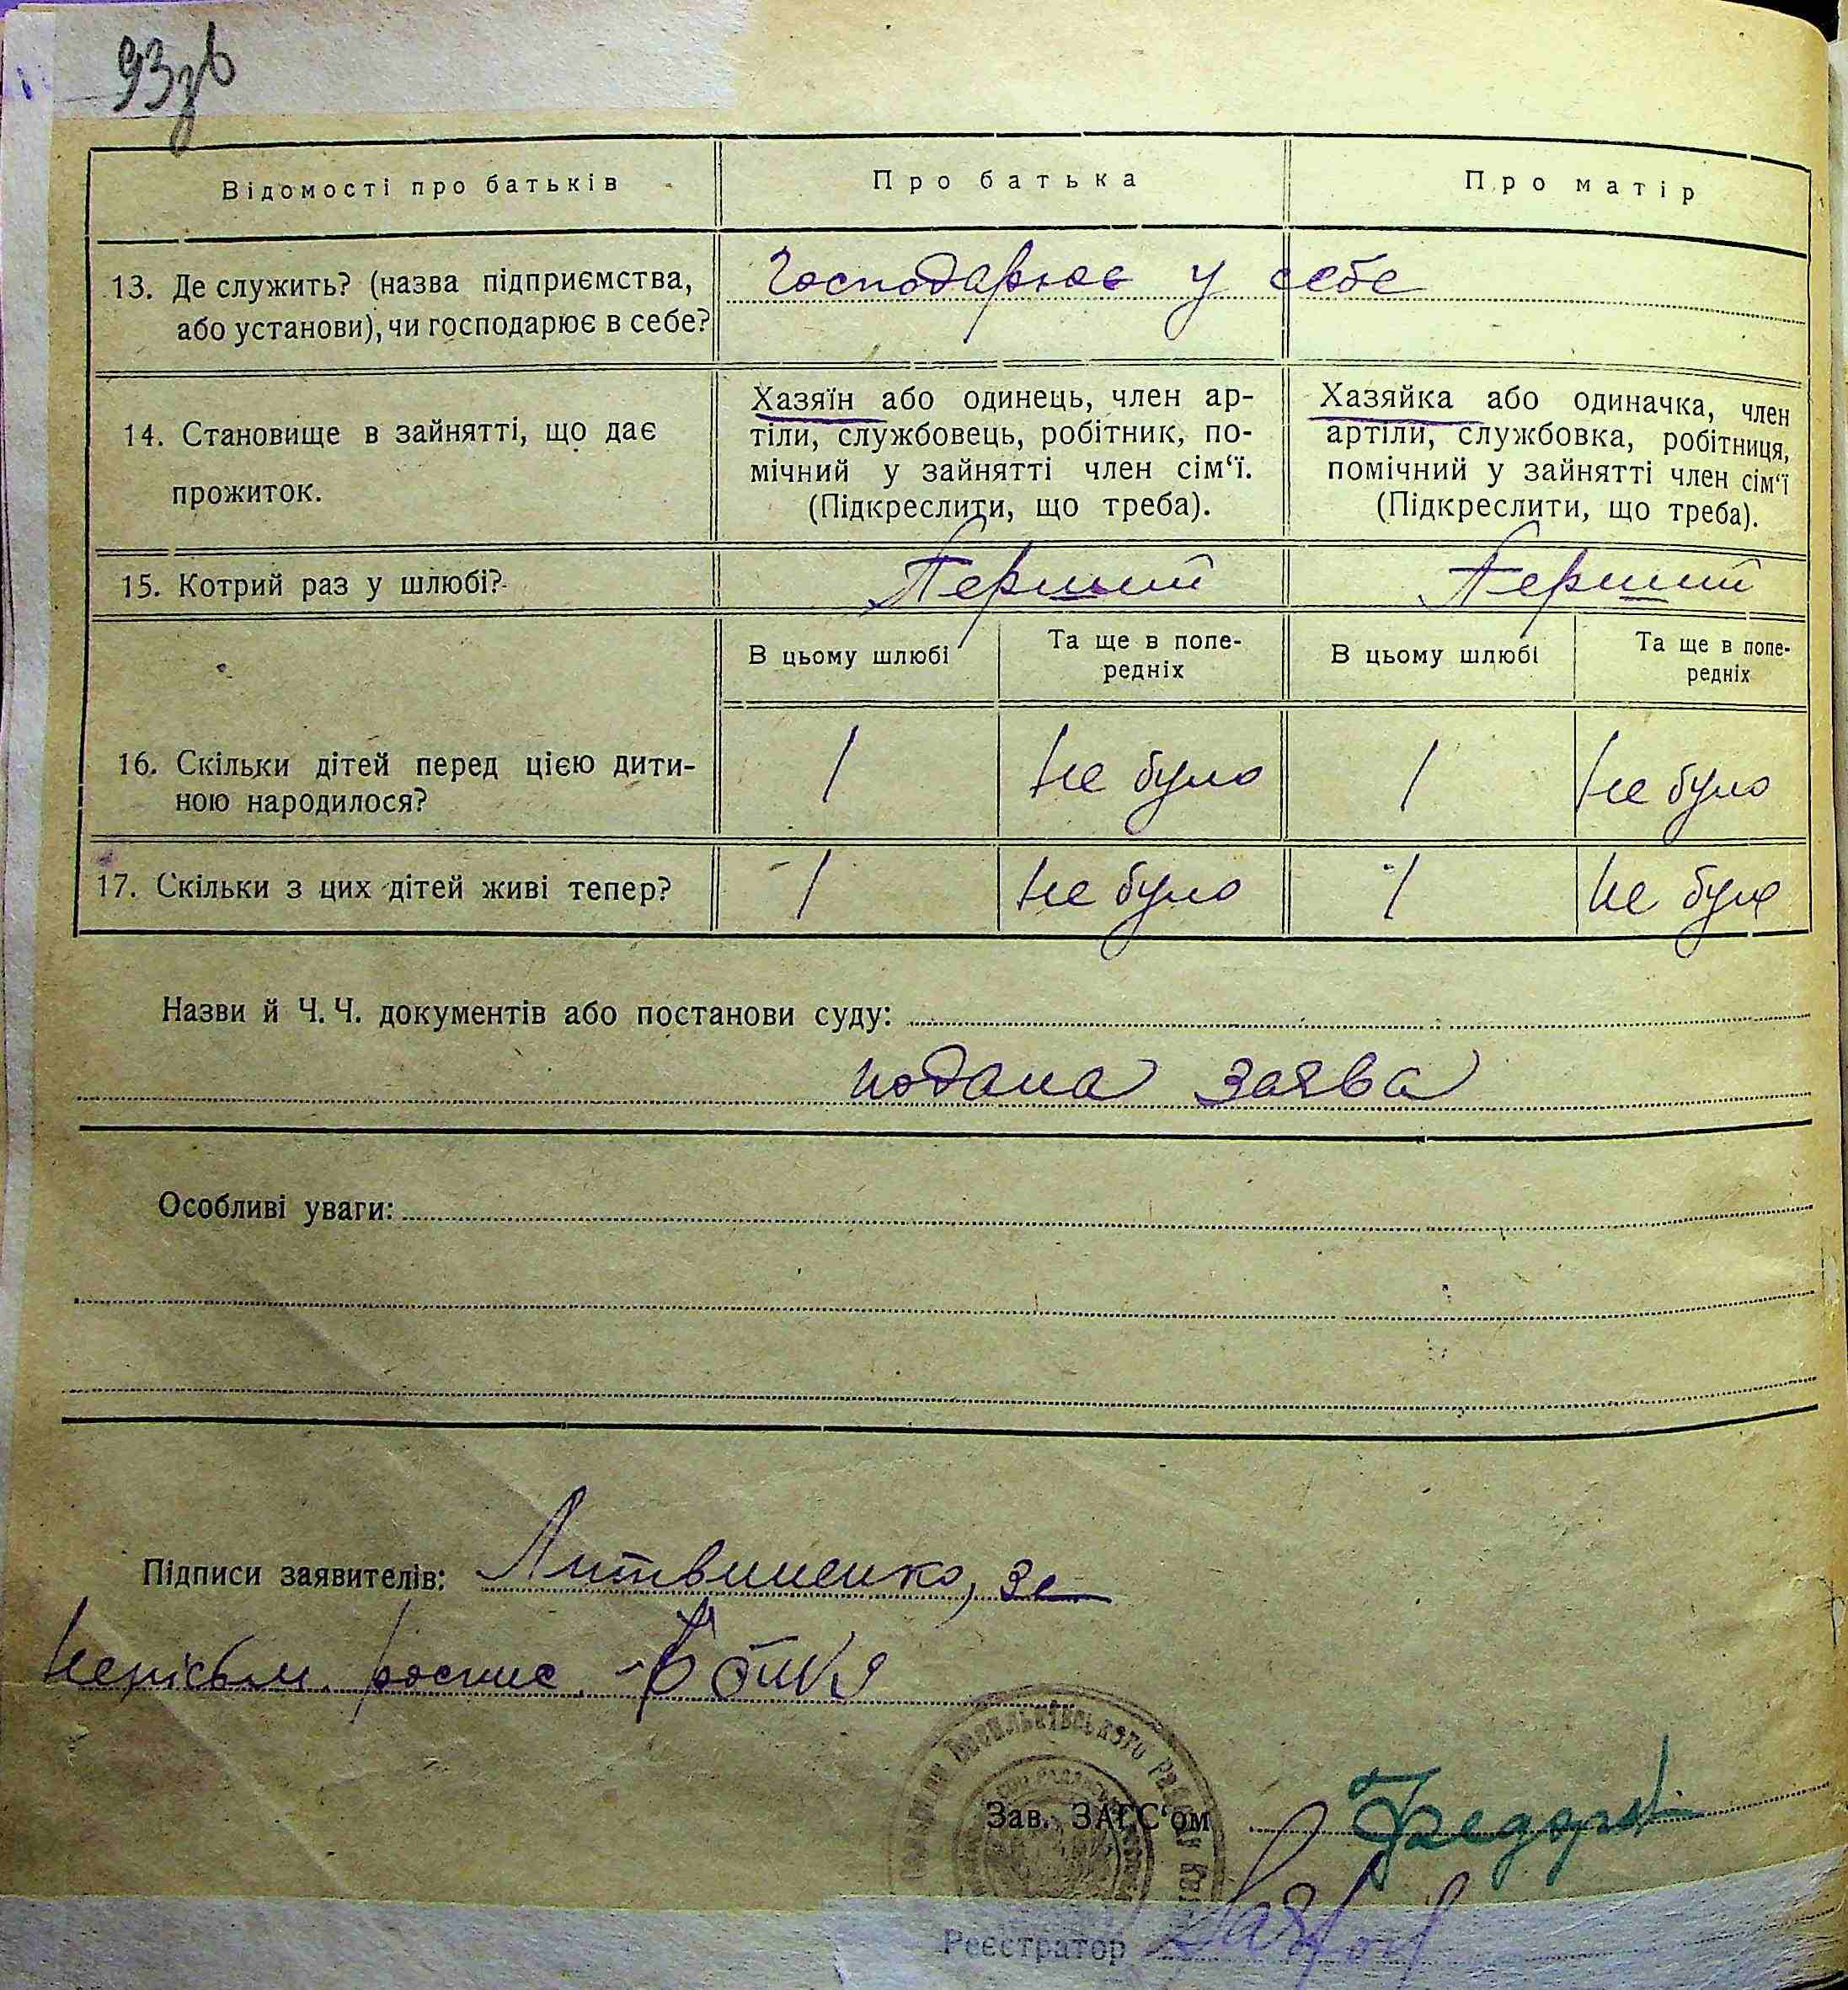 93зв
Відомості про батьків Про батька Про матір
13. Де служить? (назва підприємства, Господарює у себе
або установи), чи господарює в себе?
14. Становище в зайнятті, що дає
прожиток.
Хазяїн або одинець, член ар-
тіли, службовець, робітник, по-
мічний у зайнятті член сім‘ї.
(Підкреслити, що треба).
Хазяйка або одиначка, член
артіли, службовка, робітниця,
помічний у зайнятті член сім‘ї
(Підкреслити, що треба).
15. Котрий раз у шлюбі? Перший Перший
В цьому шлюбі Та ще в попе-
редніх В цьому шлюбі Та ще в попе-
редніх
16. Скільки дітей перед цією дити-
ною народилося? 1 не було 1 не було
17. Скільки з цих дітей живі тепер? 1 не було 1 не було
Назви й Ч. Ч. документів або постанови суду:
подана заява
Особливі уваги:
Підписи заявителів: Литвиненко, за
неписьм. роспис
Зав. ЗАГС‘ом
Реєстратор